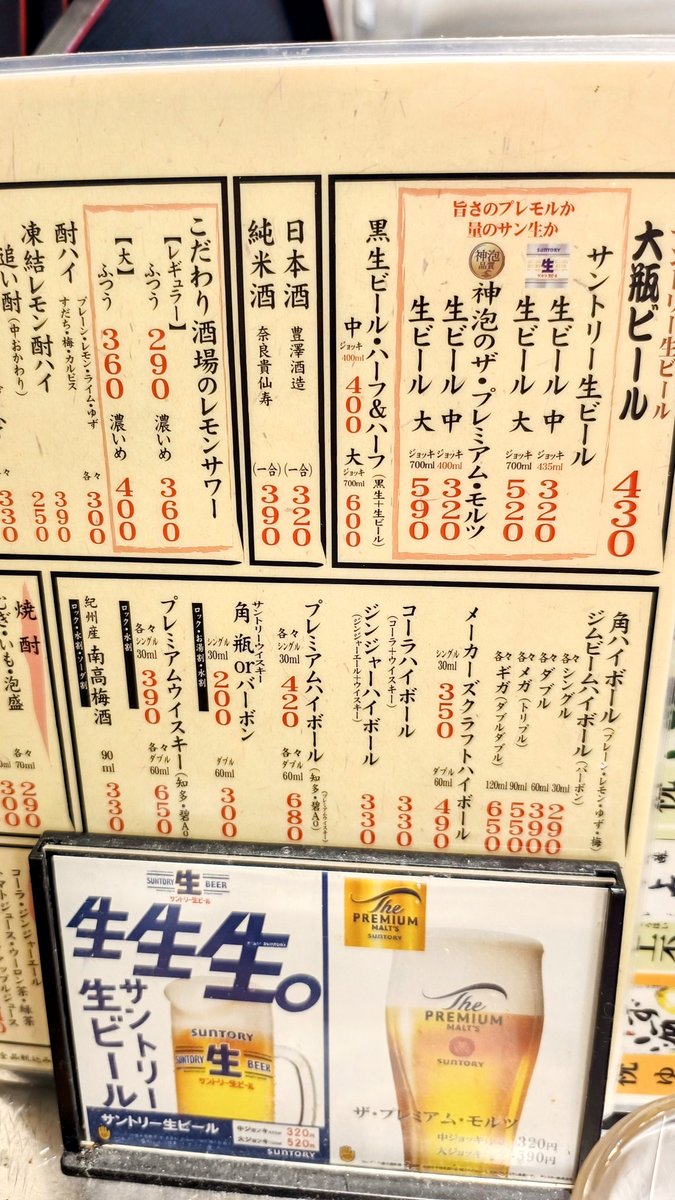 サントリー生ビール
大瓶ビール 430
旨さのプレモルか
量のサン生か
サントリー生ビール
生
生ビール 中 ジョッキ 435ml 320
生ビール 大 ジョッキ 700ml 520
神泡品質
神泡のザ・プレミアム・モルツ
生ビール 中 ジョッキ 400ml 320
生ビール 大 ジョッキ 700ml 590
黒生ビール・ハーフ&ハーフ(黒生+生ビール)
中 ジョッキ 400ml 400 大 ジョッキ 700ml 600
日本酒 豊澤酒造 (一合) 320
純米酒 奈良貴仙寿 (一合) 390
こだわり酒場のレモンサワー
【レギュラー】
ふつう 290 濃いめ 360
【大】
ふつう 360 濃いめ 400
プレーン・レモン・ライム・ゆず 各々 300
酎ハイ
すだち・梅・カルピス 390
凍結レモン酎ハイ 250
追い酎(中おかわり)
各々 330
角ハイボール(プレーン・レモン・ゆず・梅)
ジムビームハイボール(バーボン)
各々シングル 30ml 290
各々ダブル 60ml 390
各々メガ(トリプル) 90ml 550
各々ギガ(ダブルダブル) 120ml 650
メーカーズクラフトハイボール
シングル 30ml 350 ダブル 60ml 490
コーラハイボール(コーラ+ウイスキー) 330
ジンジャーハイボール(ジンジャーエール+ウイスキー) 330
プレミアムハイボール(知多・碧Ao)
各々 シングル 30ml 420 各々 ダブル 60ml 680
サントリーウイスキー
角瓶orバーボン
ロック・お湯割・水割
シングル 30ml 200 ダブル 60ml 300
プレミアムウイスキー(知多・碧Ao)
ロック・水割
各々 シングル 30ml 390 各々 ダブル 60ml 650
紀州産 南高梅酒 90ml 330
ロック・水割・ソーダ割
焼酎
むぎ・いも・泡盛
各々 70ml 290
300
コーラ・ジンジャーエール
ウーロン茶・緑茶
アップルジュース
SUNTORY 生 BEER
サントリー生ビール
生生生。
サントリー
生ビール
SUNTORY
SUNTORY 生 BEER
サントリー生ビール
サントリー生ビール
中ジョッキ 320円
大ジョッキ 520円
SUNTORY
The PREMIUM MALT'S
SUNTORY
The PREMIUM MALT'S
SUNTORY
ザ・プレミアム・モルツ
中ジョッキ 320円
大ジョッキ 590円